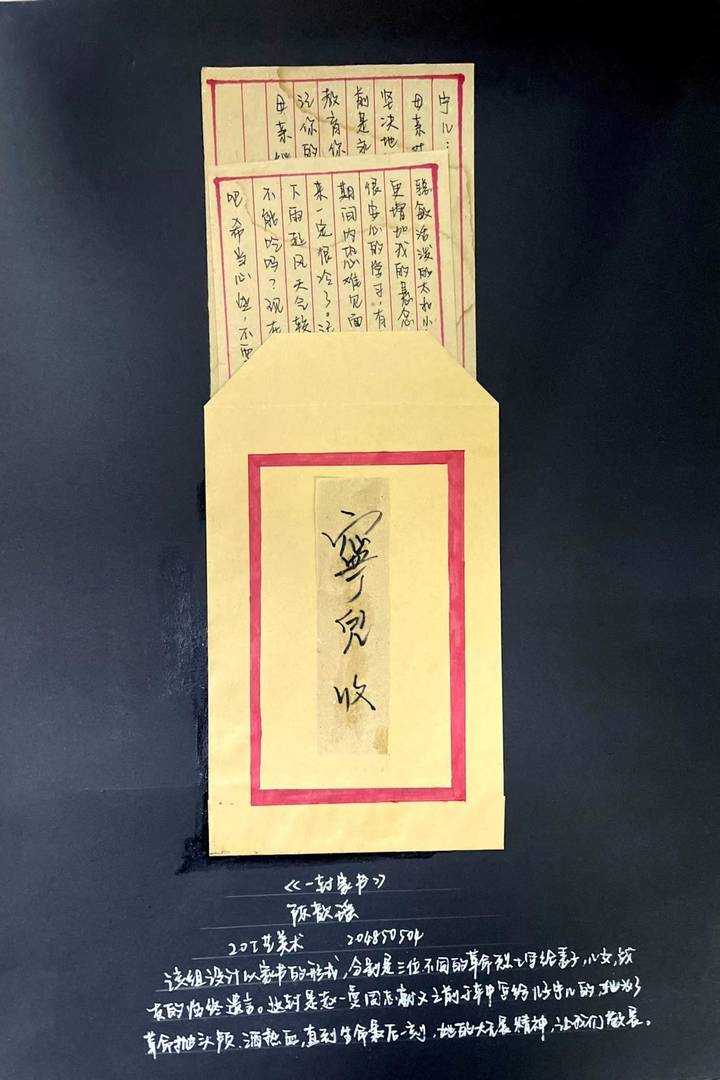 宁儿：
母亲
坚决地
前是永
教育你
活你的
母亲
聪敏活泼的太和小
更增加我的悬念
很安心的学习，有
期间内恐难见面
来一定很冷了。
下雨起风天气较
不能吃吗？现在
吧 希当心些，不要
寧兒收
《一封家书》
陈歆瑶
20工艺美术 204850504
该组设计以家书的形式，分别是三位不同的革命烈士写给妻子，儿女，战
友的临终遗言。这封是赵一曼同志就义之前于车中写给儿子宁儿的，她为了
革命抛头颅、洒热血，直到生命最后一刻，她的大无畏精神，让我们敬畏。